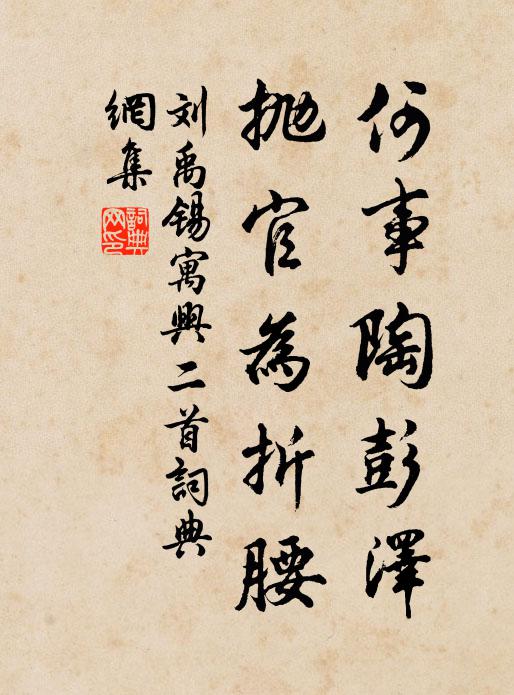 何事陶彭澤
抛官為折腰
刘禹锡寓興二首詞典
網集
詞典網印